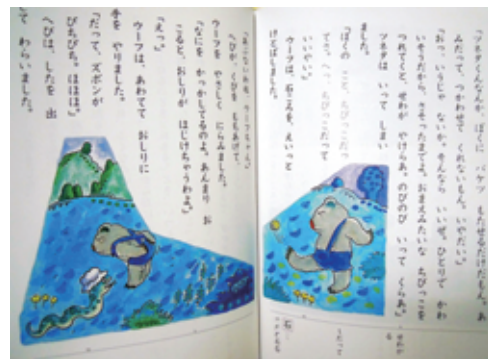 「ツネタくんなんか、ぼくに　バケツ　もたせるだけだもん。あ
みだって、つかわせて　くれないもん。いやだい。」
「おっ、いうじゃ　ないか。そんなら　いいぜ。ひとりで　かわ
いそうだから、さそったまでよ。おまえみたいな　ちびっこを
つれてくと、せわが　やけらあ。のびのび　いって　くらあ。」
ツネタは　いって　しまい
ました。
「ぼくの　こと、ちびっこだっ
て。へっ、ちびっこだって
いいやい。」
ウーフは、石ころを、えいっと
けとばしました。
「あぶないわねえ、ウーフちゃん。」
へびが、くびを　もちあげて、
ウーフを　やさしく　にらみました。
「なにを　かっかしてるのよ。あんまり　お
こると、おしりが　はじけちゃうわよ。」
「えっ。」
ウーフは、あわてて　おしりに
手を　やりました。
「だって、ズボンが
ぴちぴち。ほほほ。」
へびは、したを　出
して　わらいました。
石